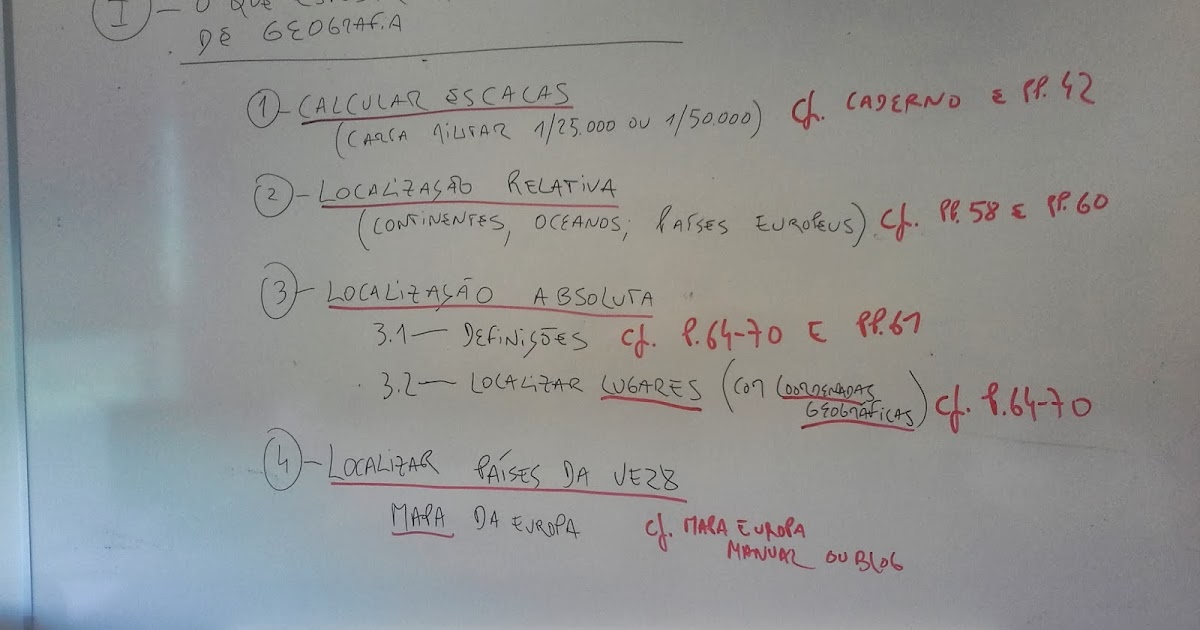 I - O QUE
DE GEOGRAFIA
1 - CALCULAR ESCALAS cf. CADERNO E PP. 42
(CARTA MILITAR 1/25.000 OU 1/50.000)
2 - LOCALIZAÇÃO RELATIVA
(CONTINENTES, OCEANOS; PAÍSES EUROPEUS) cf. PP. 58 E PP. 60
3 - LOCALIZAÇÃO ABSOLUTA
3.1 — DEFINIÇÕES cf. P. 64-70 E PP. 61
3.2 — LOCALIZAR LUGARES (COM COORDENADAS
GEOGRÁFICAS) cf. P. 64-70
4 - LOCALIZAR PAÍSES DA UE28
MAPA DA EUROPA cf. MAPA EUROPA
MANUAL OU BLOG